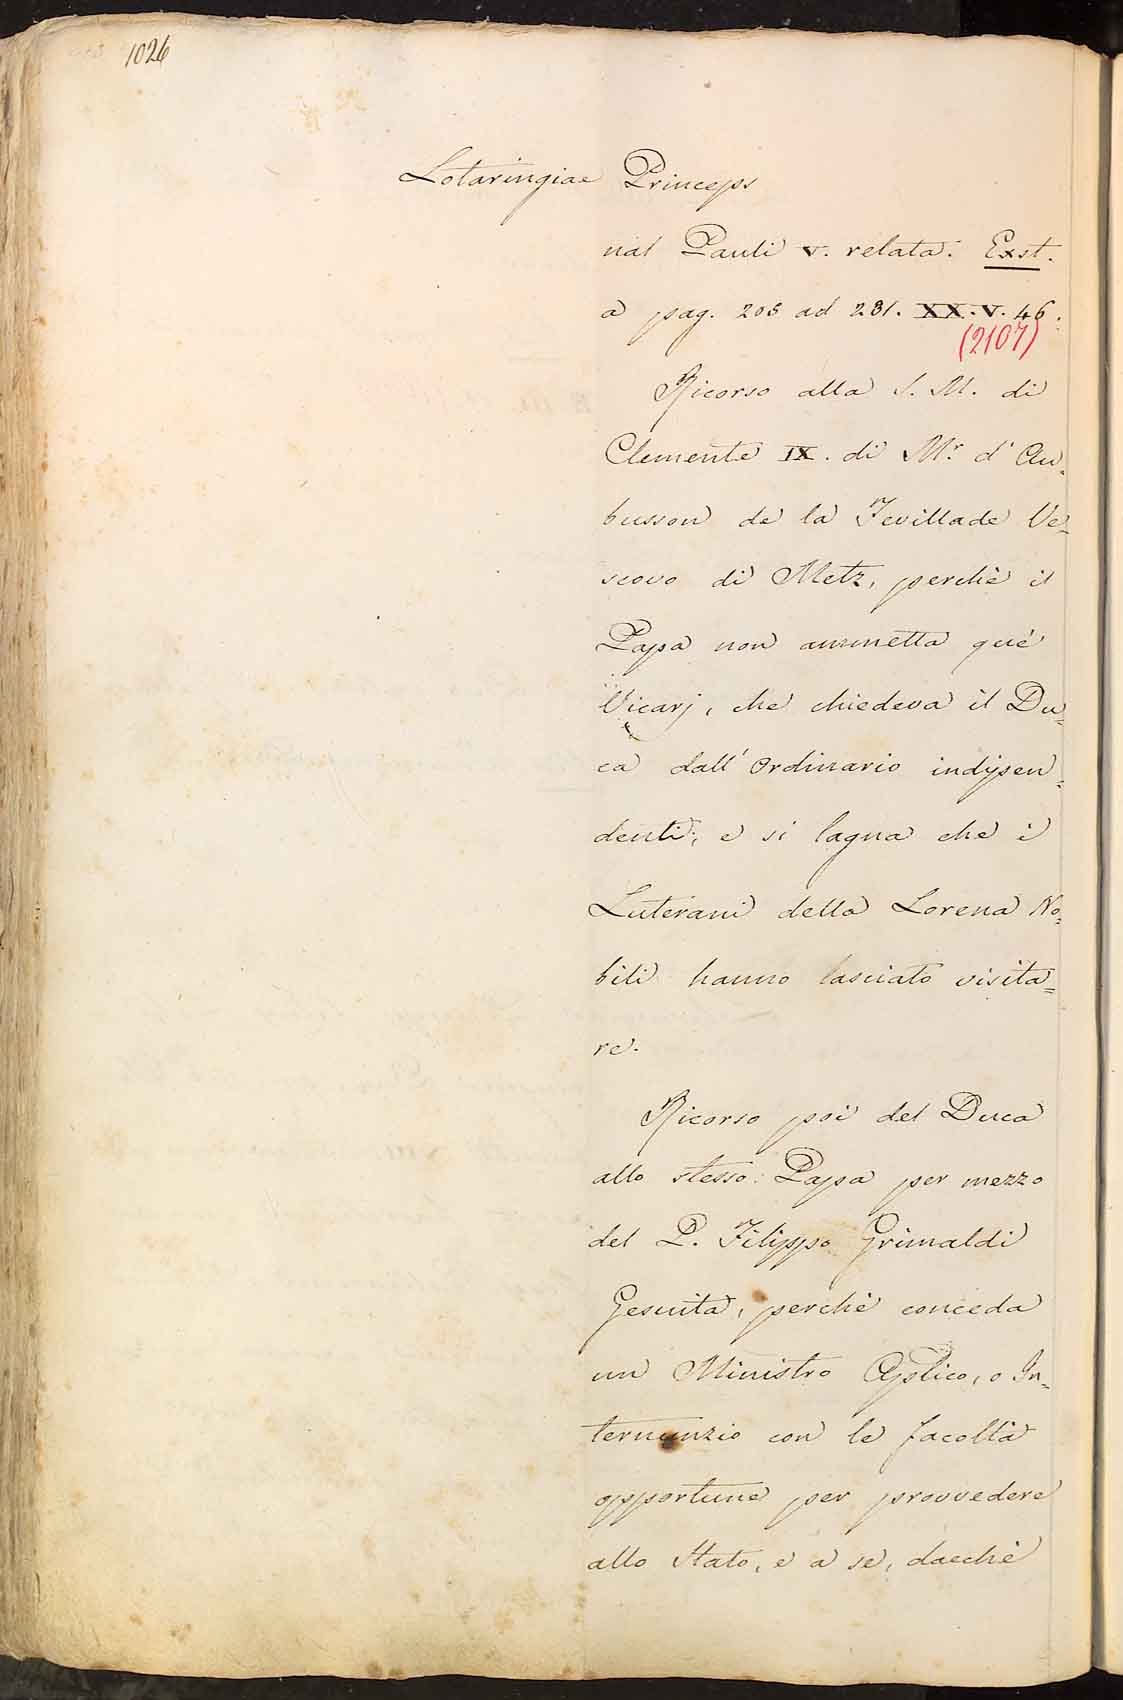 1026
Lotaringiae Princeps
nal Pauli V. relata. Exst.
a pag. 208 ad 281. XX. V. 46.
(2107)
Ricorso alla S. M. di
Clemente IX. di Mr. d'Au=
busson de la Fevillade Ve=
scovo di Metz, perchè il
Papa non ammetta que'
Vicarj, che chiedeva il Du=
ca dall'Ordinario indipen=
denti; e si lagna che i
Luterani della Lorena No=
bili hanno lasciato visita=
re.
Ricorso poi del Duca
allo stesso Papa per mezzo
del P. Filippo Grimaldi
Gesuita, perchè conceda
un Ministro Aplico, o In=
ternunzio con le facoltà
opportune per provvedere
allo Stato, e a se, dacchè